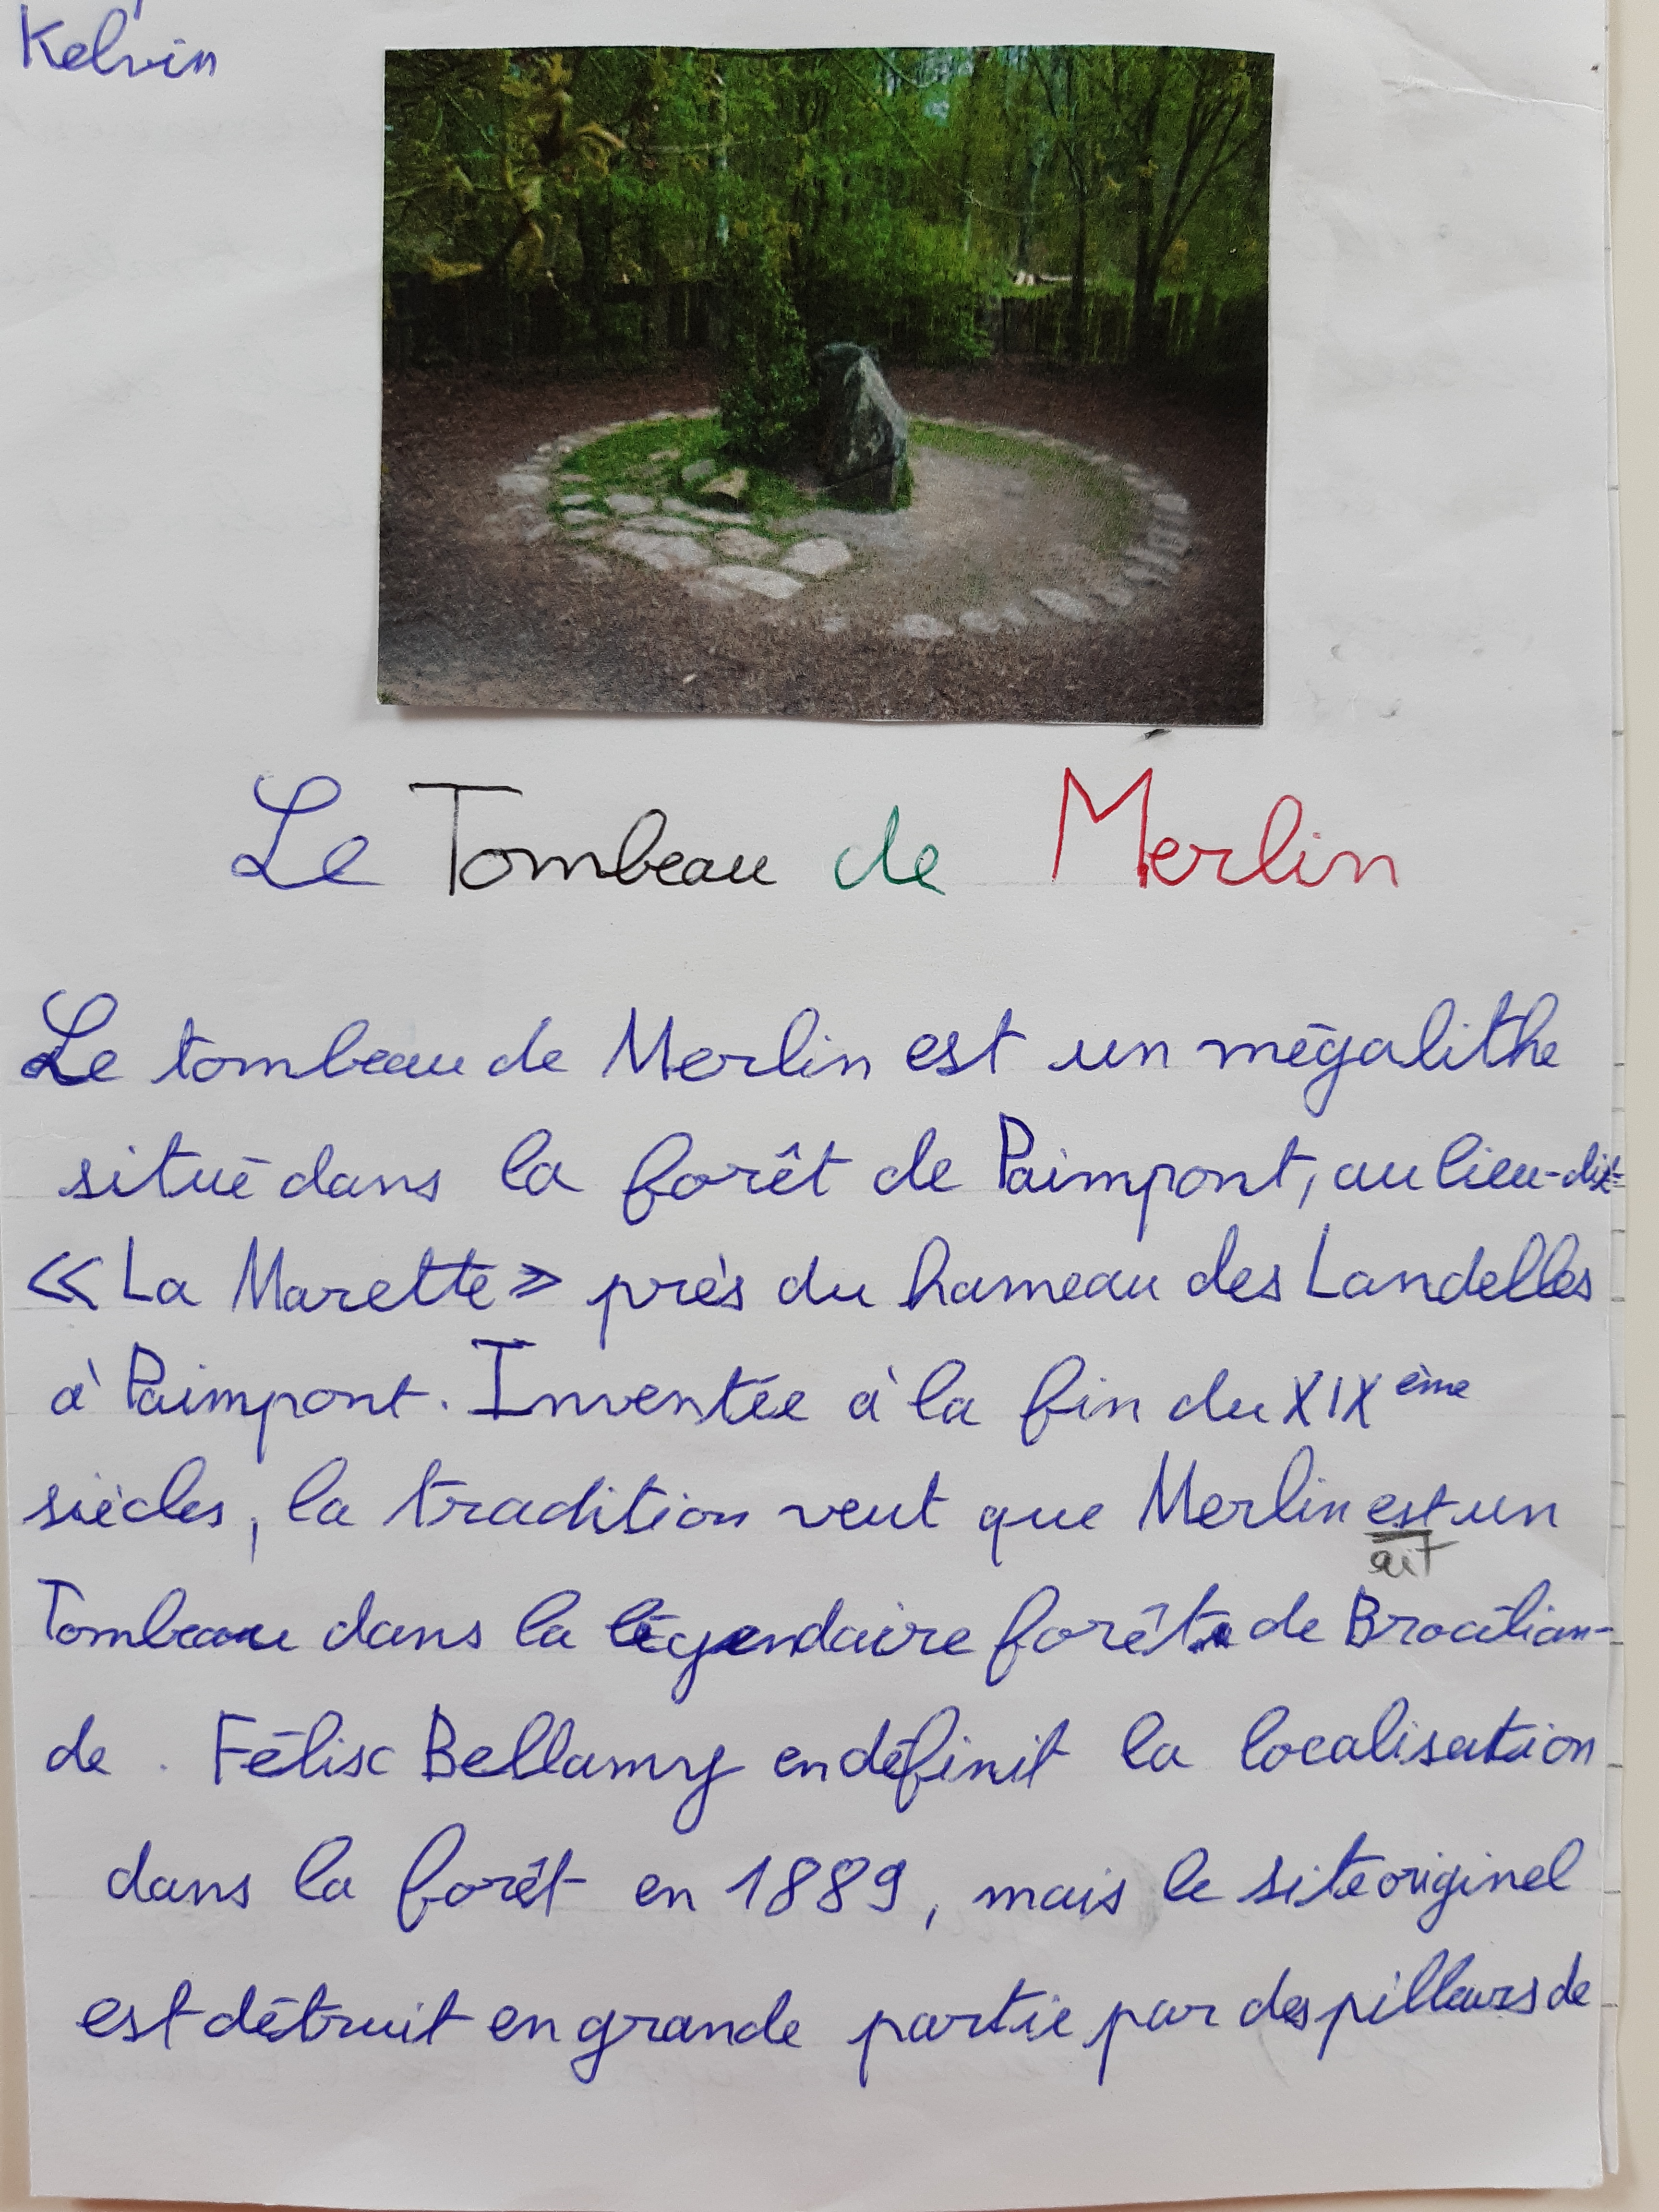 Kelvin
Le Tombeau de Merlin
Le tombeau de Merlin est un mégalithe
situé dans la forêt de Paimpont, au lieu-dit
« La Marette » près du hameau des Landelles
à Paimpont. Inventée à la fin du XIXème
siècles, la tradition veut que Merlin est un
ait
Tombeau dans la légendaire forêt de Brocélian-
de. Félix Bellamy en définit la localisation
dans la forêt en 1889, mais le site originel
est détruit en grande partie par des pilleurs de